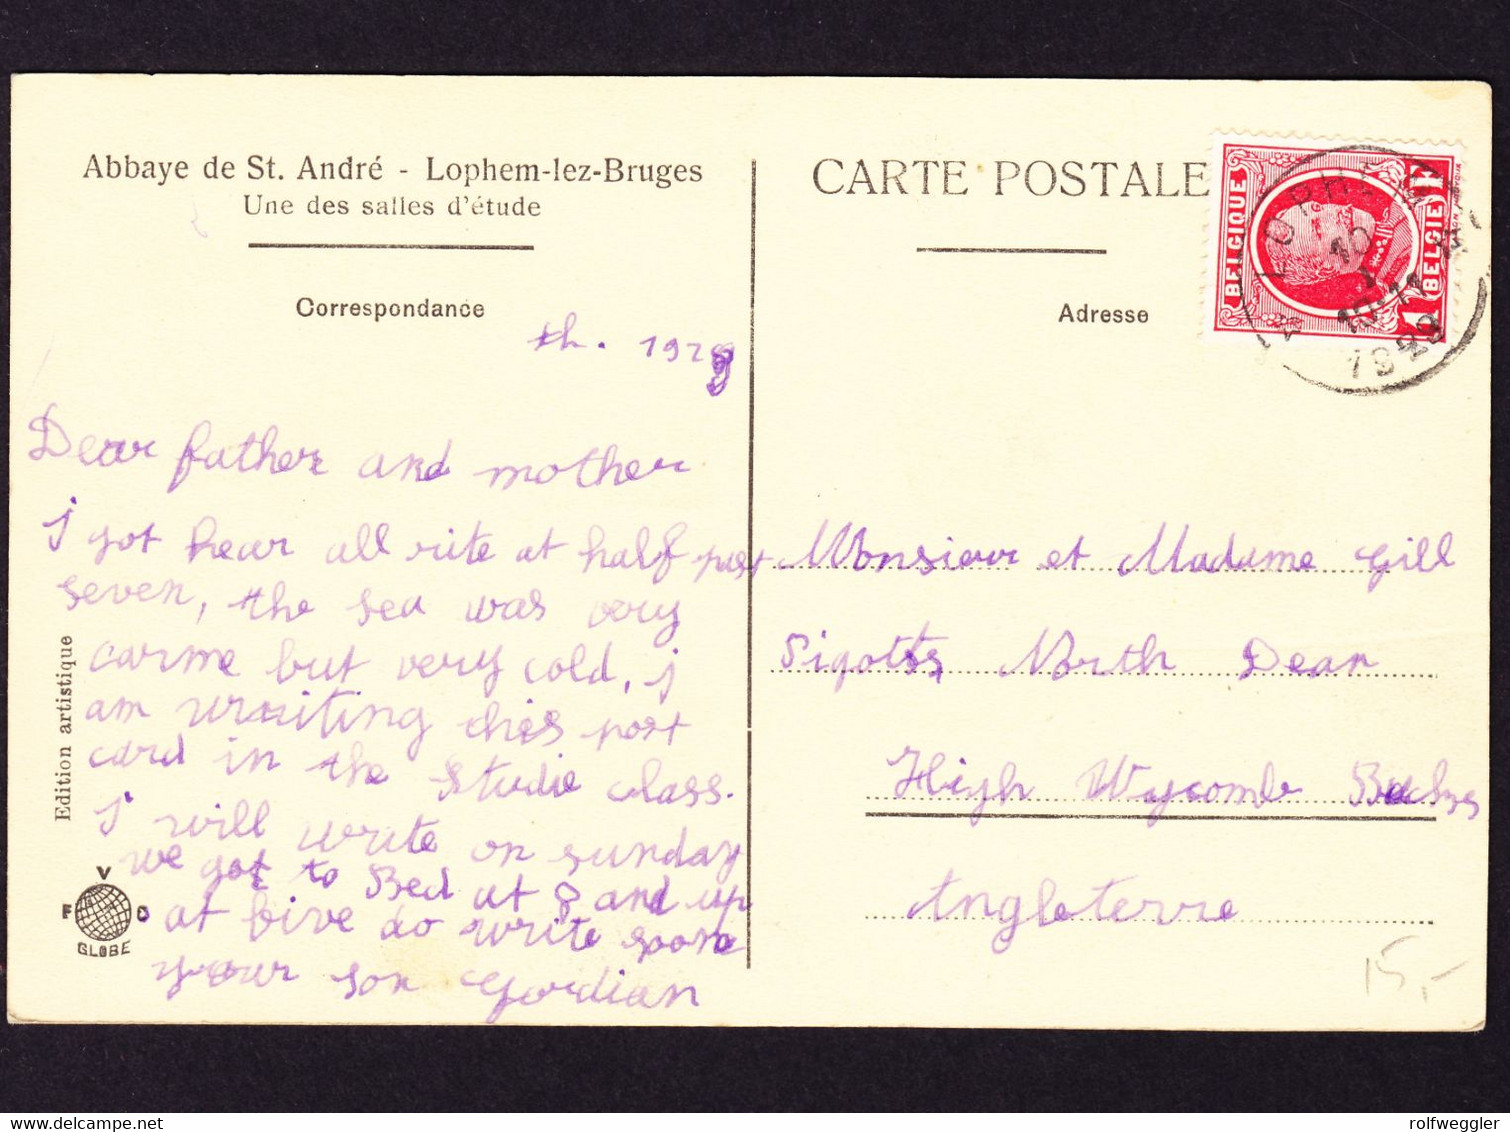 Abbaye de St. André - Lophem-lez-Bruges
Une des salles d'étude
Correspondance
th. 1929
Dear father and mother
I got hear all rite at half past
seven, the sea was very
carme but very cold, i
am writing this post
card in the studie class.
I will write on sunday
we got to Bed at 8 and up
at five do write soon
your son Gordian
Edition artistique
V
F D
GLOBE
CARTE POSTALE
Adresse
BELGIQUE
BELGIE
1F
1F
LOPHEM
10
I
10-11
1929
Monsieur et Madame Gill
Pigotts North Dean
High Wycombe Bucks
Angleterre
15,-
rolfweggler